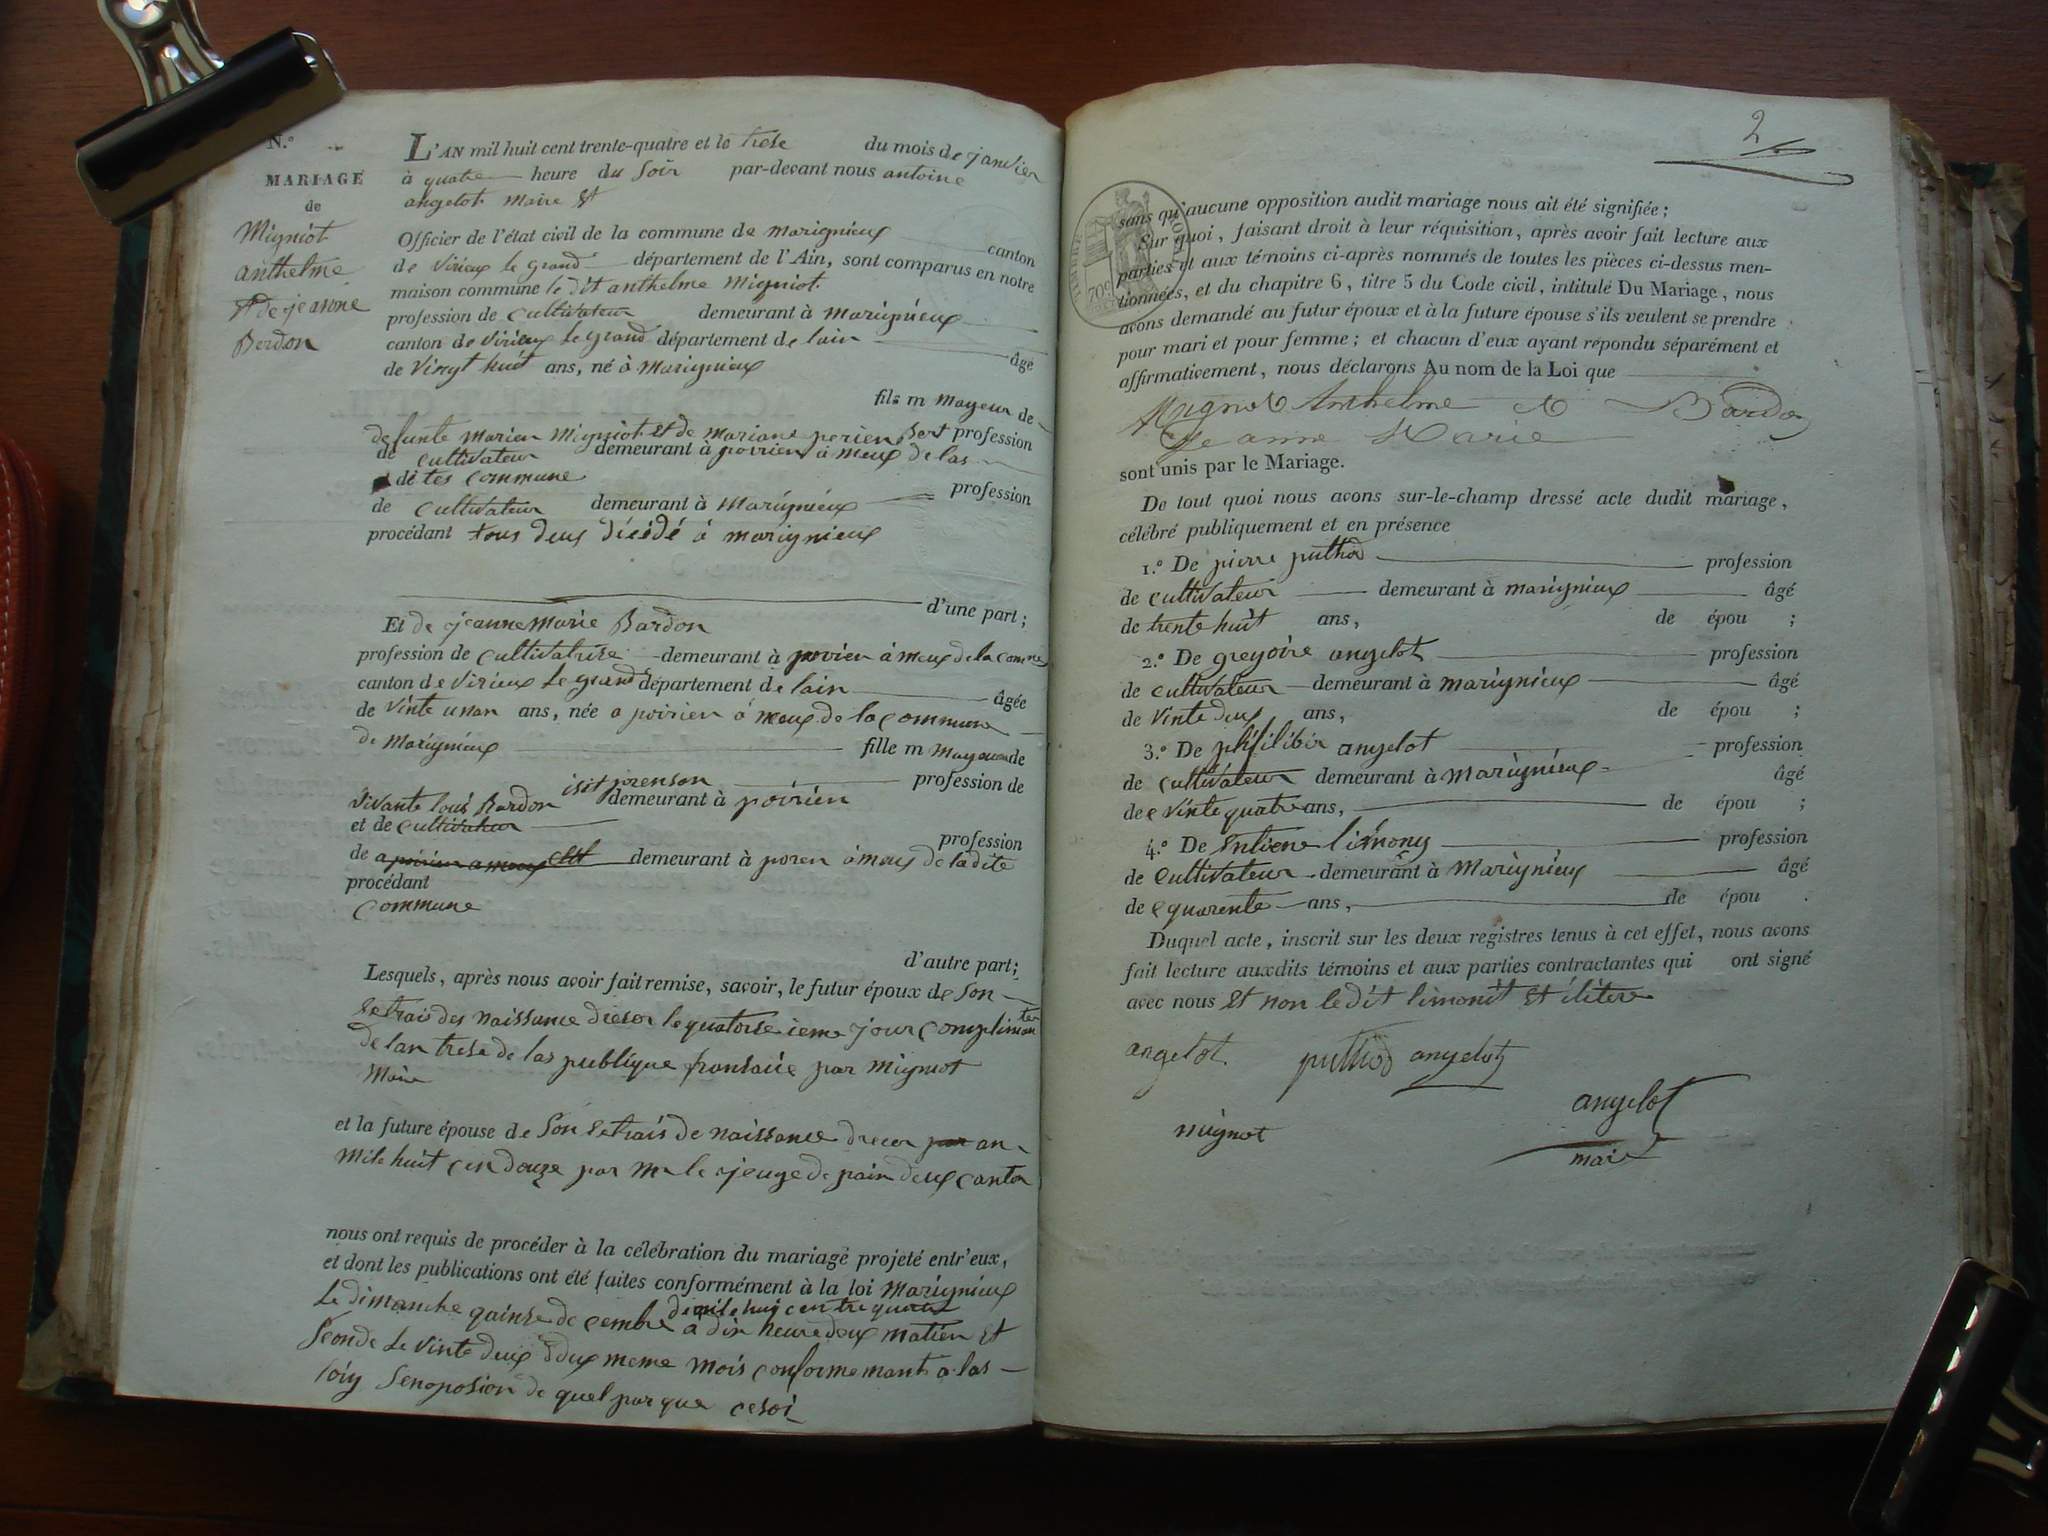 N.°
MARIAGE
de
Migniot
anthelme
Et de jeanne
Berdon
L'AN mil huit cent trente-quatre et le trese du mois de janvier
à quatre heure du soir par-devant nous antoine
angelot maire Et
Officier de l'état civil de la commune de marignieux canton
de virieux le grand département de l'Ain, sont comparus en notre
maison commune le dit anthelme Migniot
profession de cultivateur demeurant à marignieux
canton de virieux le grand département de lain âgé
de vingt huit ans, né à Marignieux
fils m mayeur de
defunte marien Migniot et de mariane perien Bert profession
de cultivateur demeurant à poirien à meux de las
dites commune profession
de cultivateur demeurant à Marignieux
procédant tous deux décédé à marignieux
d'une part;
Et de jeanne marie Bardon
profession de cultivatrise demeurant à poirien à meux de la comme
canton de virieux le grand département de lain âgée
de vinte unan ans, née a poirien a meux de la commune
de Marignieux fille m mayeur de
vivante loui Bardon demeurant à poirien profession de
et de cultivateur
profession
de a poirien a meux cult demeurant à poren à meux de la dite
procédant
commune
d'autre part;
Lesquels, après nous avoir fait remise, savoir, le futur époux de son
Setrai des naissance dresor le quatorse ieme jour complimanter
de lan trese de las publique fransaise par Migniot
Maire
et la future épouse de son setrais de naissance drecer par an
mile huit cen douze par Mr le jeuge de pain deux canton
nous ont requis de procéder à la célébration du mariage projeté entr'eux,
et dont les publications ont été faites conformément à la loi Marignieux
Le dimanche quinse de cembre à dix heure deux matien Et
Seonde Le vinte deux dux meme mois conformemant a las
loiy Senoposion de quel par que cesoi
2
sans qu'aucune opposition audit mariage nous ait été signifiée;
Sur quoi, faisant droit à leur réquisition, après avoir fait lecture aux
parties et aux témoins ci-après nommés de toutes les pièces ci-dessus men-
tionnées, et du chapitre 6, titre 5 du Code civil, intitulé Du Mariage, nous
avons demandé au futur époux et à la future épouse s'ils veulent se prendre
pour mari et pour femme; et chacun d'eux ayant répondu séparément et
affirmativement, nous déclarons Au nom de la Loi que
Mignot Anthelme et Bardon
Jeanne Marie
sont unis par le Mariage.
De tout quoi nous avons sur-le-champ dressé acte dudit mariage,
célébré publiquement et en présence
1.° De pierre puthod profession
de cultivateur demeurant à marignieux âgé
de trente huit ans, de épou ;
2.° De gregoire angelot profession
de cultivateur demeurant à marignieux âgé
de vinte deux ans, de épou ;
3.° De philibir angelot profession
de cultivateur demeurant à Marignieux âgé
de vinte quatre ans, de épou ;
4.° De Entiene limony profession
de cultivateur demeurant à Marignieux âgé
de quarente ans, de épou .
Duquel acte, inscrit sur les deux registres tenus à cet effet, nous avons
fait lecture auxdits témoins et aux parties contractantes qui ont signé
avec nous Et non ledit limonit Et ilitere
angelot puthod angelot
angelot
mignot
maire